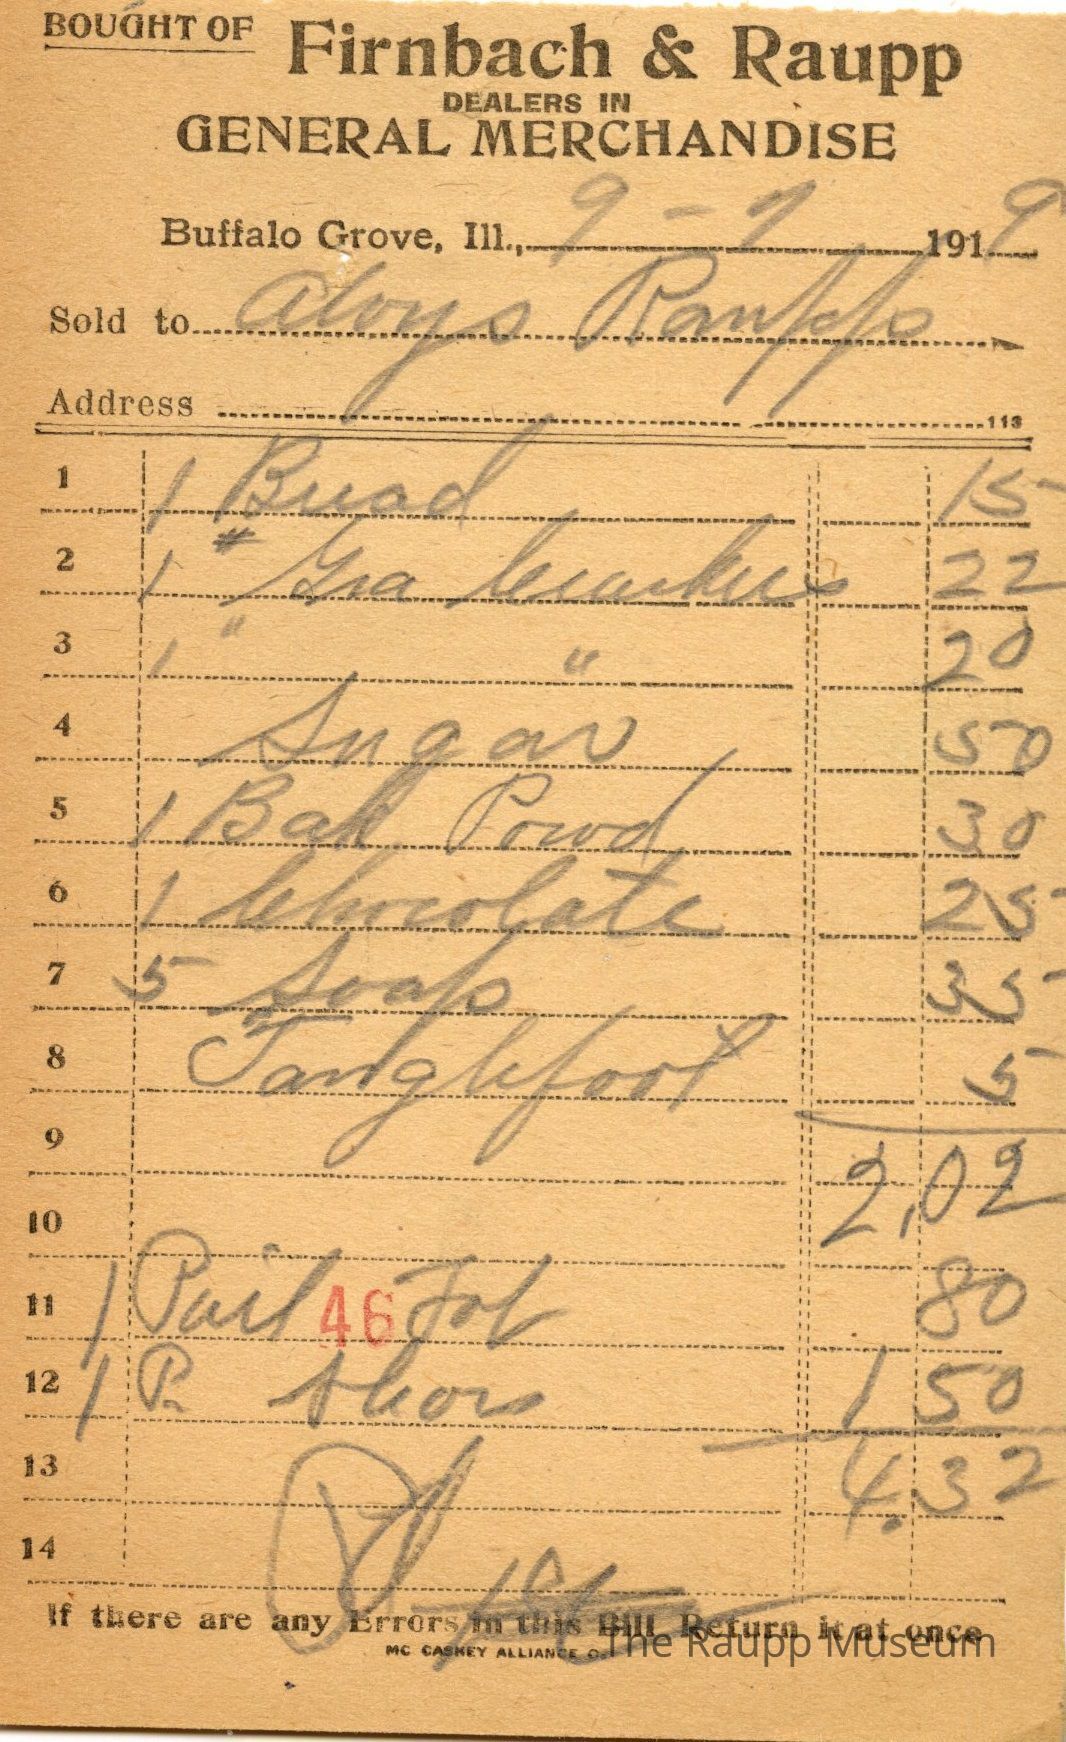 BOUGHT OF Firnbach & Raupp
DEALERS IN
GENERAL MERCHANDISE
Buffalo Grove, Ill., 9 - 7 1919
Sold to Aloys Raupp
Address 113
1 1 Bread 15
2 1 # Gra Crackers 22
3 1 " " 20
4 Sugar 50
5 1 Bak Powd 30
6 1 Chocolate 25
7 5 Soap 35
8 Tanglefoot 5
9 2,02
10
11 1 Pail 46 80
12 1 P. Shoes 1 50
13 4.32
14
If there are any Errors in this Bill Return it at once
MC CASKEY ALLIANCE O.
The Raupp Museum